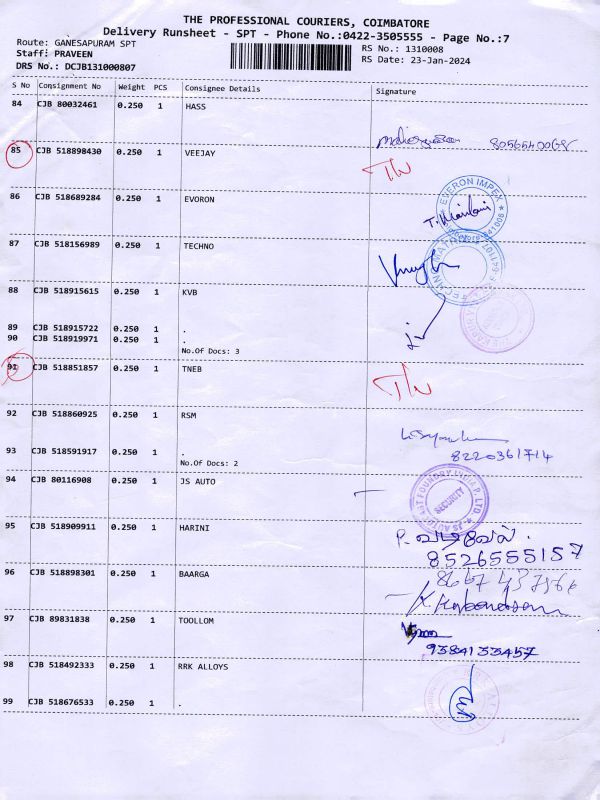 THE PROFESSIONAL COURIERS, COIMBATORE
Delivery Runsheet - SPT - Phone No.:0422-3505555 - Page No.:7
Route: GANESAPURAM SPT
RS No.: 1310008
Staff: PRAVEEN
RS Date: 23-Jan-2024
DRS No.: DCJB131000807
S No Consignment No Weight PCS Consignee Details Signature
84 CJB 80032461 0.250 1 HASS
8056540068
85 CJB 518898430 0.250 1 VEEJAY
86 CJB 518689284 0.250 1 EVORON
EVERON IMPEX
87 CJB 518156989 0.250 1 TECHNO
88 CJB 518915615 0.250 1 KVB
89 CJB 518915722 0.250 1 .
90 CJB 518919971 0.250 1 .
No.Of Docs: 3
91 CJB 518851857 0.250 1 TNEB
92 CJB 518860925 0.250 1 RSM
8220361714
93 CJB 518591917 0.250 1 .
No.Of Docs: 2
94 CJB 80116908 0.250 1 JS AUTO
JS AUTO CAST FOUNDRY INDIA P. LTD.
SECURITY
95 CJB 518909911 0.250 1 HARINI
P. வடிவேல்.
8526555157
96 CJB 518898301 0.250 1 BAARGA
97 CJB 89831838 0.250 1 TOOLLOM
9384133457
98 CJB 518492333 0.250 1 RRK ALLOYS
99 CJB 518676533 0.250 1 .